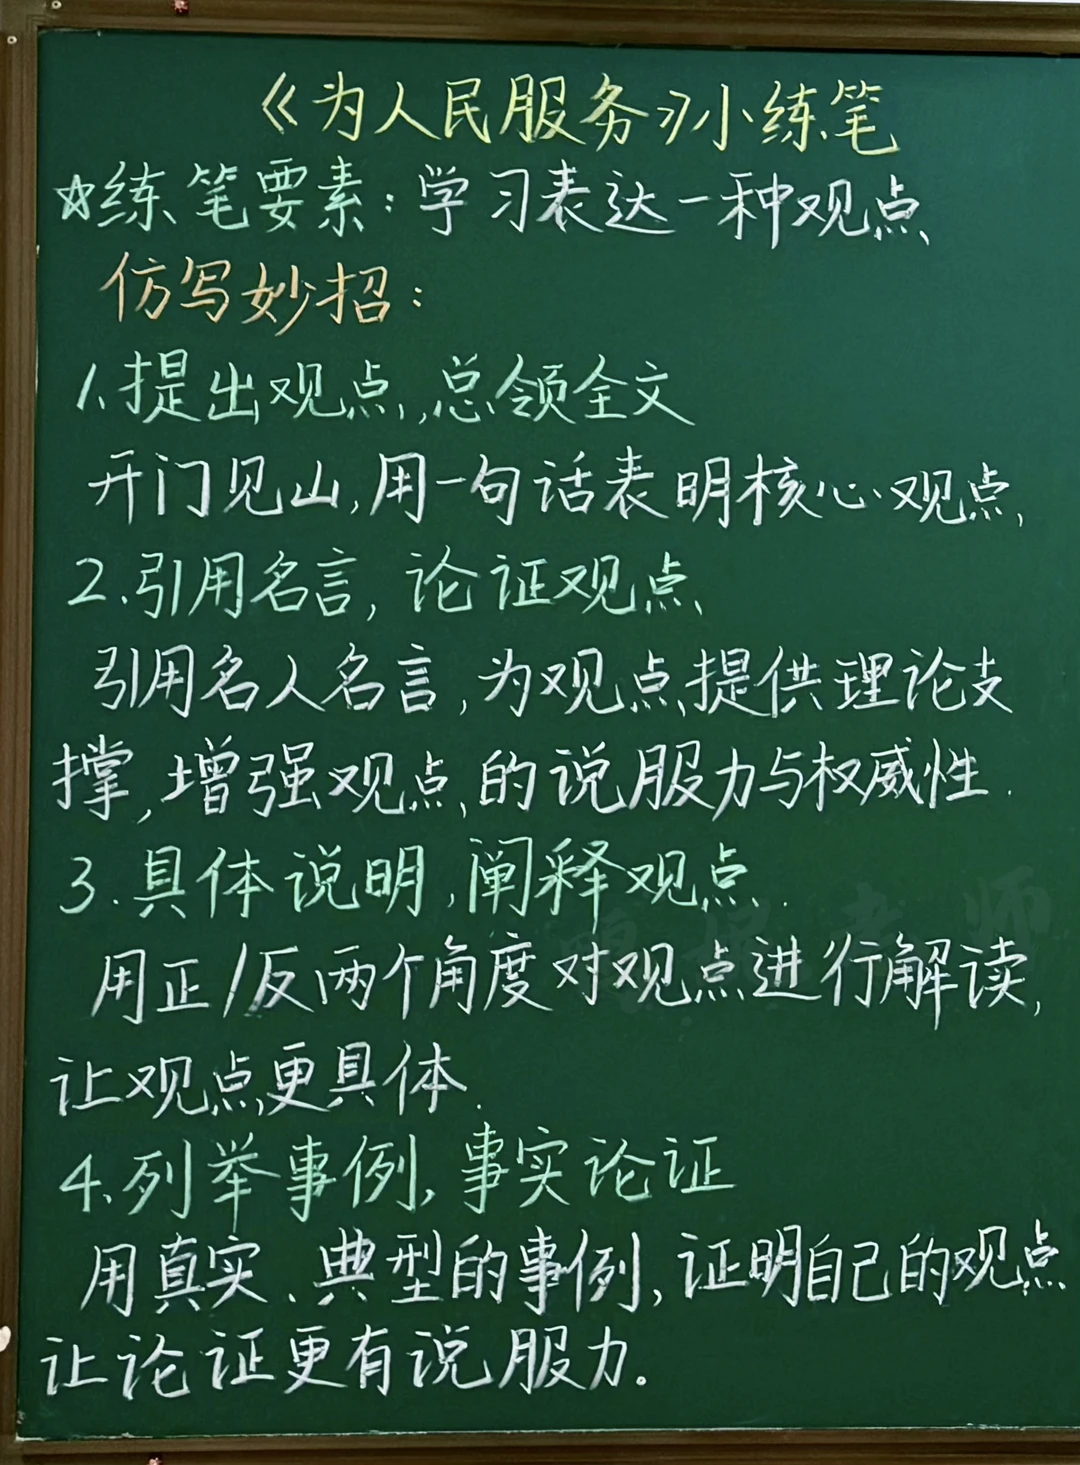 《为人民服务》小练笔
☆练笔要素:学习表达一种观点
仿写妙招:
1.提出观点,总领全文
开门见山,用一句话表明核心观点,
2.引用名言,论证观点
引用名人名言,为观点提供理论支
撑,增强观点的说服力与权威性.
3.具体说明,阐释观点.
用正/反两个角度对观点进行解读,
让观点更具体.
4.列举事例,事实论证
用真实、典型的事例,证明自己的观点
让论证更有说服力。